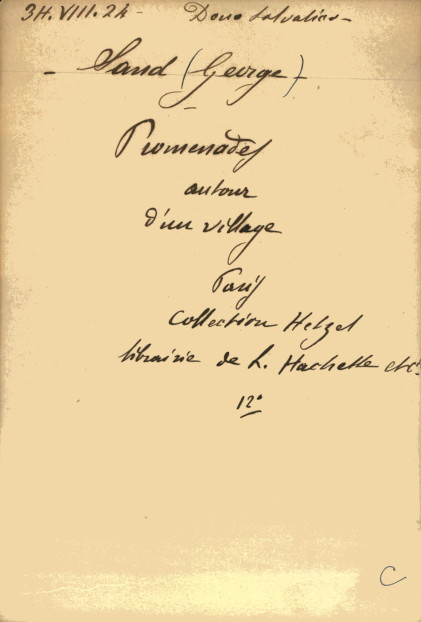 34.VIII.24 - Dono Salvatico -
- Sand (George) -
Promenades
autour
d'un village
Paris
Collection Hetzel
librairie de L. Hachette et Cie
12°
C